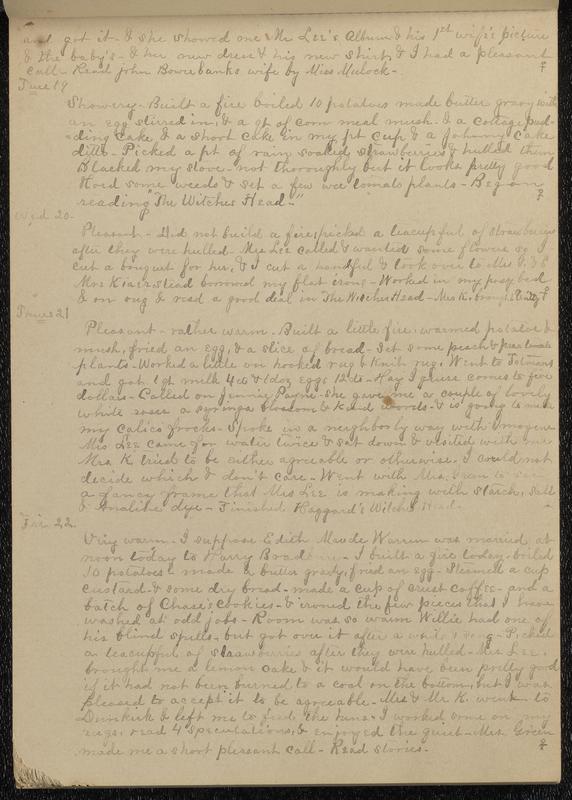 and got it & she showed me Mr Lee's Album & his 1st wife's picture
& the baby's - & her new dress & his new shirt, & I had a pleasant
call - Read John Bowerbanks wife by Miss Mulock - ♀
Tues 19
Showery - Built a fire boiled 10 potatoes made butter gravy with
an egg stirred in, & a qt of corn meal mush. & a cottage pud-
-ding cake & a short cake in my pt cup & a Johnny Cake
ditto - Picked a pt of rain soaked strawberries & hulled them
Blacked my stove - not thoroughly but it looks pretty good
Hoed some weeds & set a few wee tomato plants - Began
reading "The Witches Head." ♀
Wed 20
Pleasant - Did not build a fire, picked a teacupful of strawberries
after they were hulled - Mrs Lee called & wanted some flowers so I
cut a bouquet for her, & I cut a handful & took over to Mrs
Mrs Kiaerstead borrowed my flat irons - Worked in my posy bed
& on rug & read a good deal in The Witches Head - Mrs K.
Thurs 21
Pleasant - rather warm - Built a little fire: warmed potatoes &
mush, fried an egg, & a slice of bread - Set some peach & pear tomato
plants - Worked a little on hooked rug & knit rug. Went to
and got 1 qt milk 4cts & 1 doz eggs 12cts - Hay I guess comes to five
dollars - Called on Jennie Payne - She gave me a couple of lovely
white roses a syringa blossom & kind words - & is going to
my calico frocks - Spoke in a neighborly way with Imogene
Mrs Lee came for water twice & sat down & visited with me
Mrs K tried to be either agreeable or otherwise. I could not
decide which & don't care - Went with Mrs. to see
a fancy frame that Mrs Lee is making with starch, salt
& Analine dye - Finished Haggard's Witches Head.
Fri 22
Very warm - I suppose Edith Maude Warren was married at
noon today to Harry - I built a fire today - boiled
10 potatoes - made a butter gravy, fried an egg - Steamed a cup
custard - & some dry bread - made a cup of crust coffee - and a
batch of Chase's cookies - & ironed the few pieces that I have
washed at odd jobs - Room was so warm Willie had one of
his blind spells - but got over it after a while - Picked
a teacupful of strawberries after they were hulled - Mrs Lee
brought me a lemon cake & it would have been pretty good
if it had not been burned to a coal on the bottom, but I was
pleased to accept it to be agreeable - Mrs & Mr K. went to
Dunkirk & left me to feed the hens - I worked some on my
rugs, read 4 speculations, & enjoyed the quiet - Mrs. Green
made me a short pleasant call - Read stories - ♀